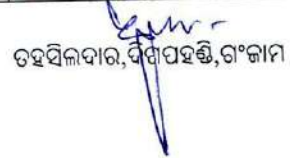 ତହସିଲଦାର,ଦିଗପହଣ୍ଡି,ଗଂଜାମ